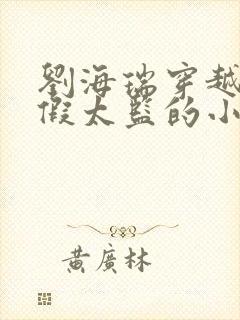 劉海瑞穿越
假太監的小
黃廣林